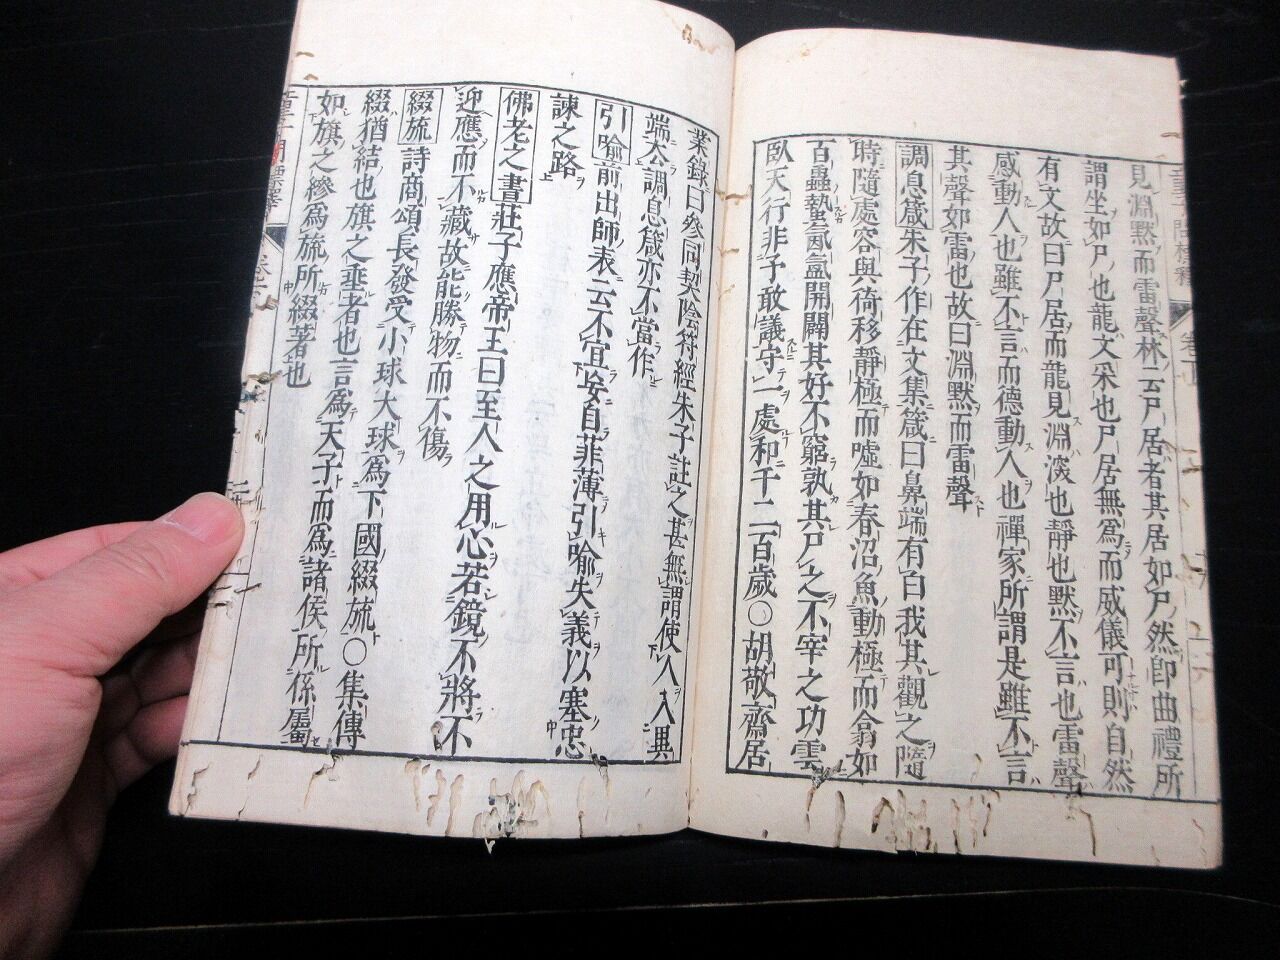 見淵默而雷聲林云尸居者其居如尸然卽曲禮所
謂坐如尸也龍文采也尸居無爲而威儀可則自然
有文故曰尸居而龍見淵深也靜也默不言也雷聲
感動人也雖不言而德動人也禪家所謂是雖不言
其聲如雷也故曰淵默而雷聲
調息箴朱子作在文集箴曰鼻端有白我其觀之隨
時隨處容與猗移靜極而噓如春沼魚動極而翕如
百蟲蟄氤氳開闢其妙不窮孰其尸之不宰之功雲
臥天行非予敢議守一處和千二百歲○胡敬齋居
業錄曰參同契陰符經朱子註之甚無謂使人入異
端去調息箴亦不當作
引喻前出師表云不宜妄自菲薄引喻失義以塞忠
諫之路
佛老之書莊子應帝王曰至人之用心若鏡不將不
迎應而不藏故能勝物而不傷
綴旒詩商頌長發受小球大球爲下國綴旒○集傳
綴猶結也旗之垂者也言爲天子而爲諸侯所係屬
如旗之縿爲旒所綴著也